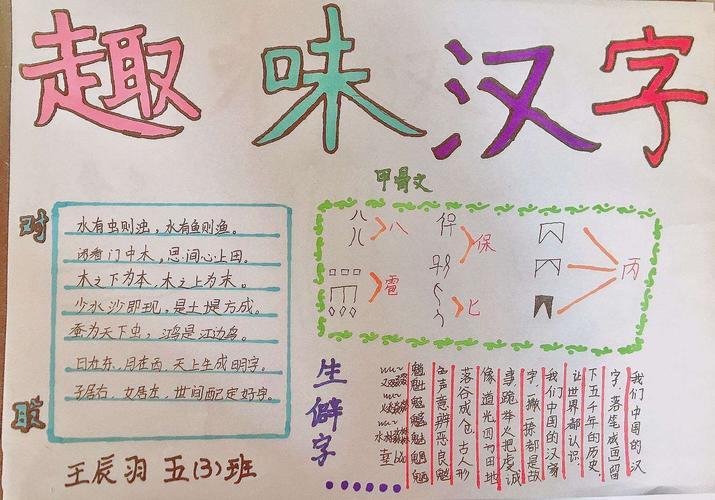 趣味汉字
对
水有虫则浊，水有鱼则渔。
闲看门中木，思间心上田。
木之下为本，木之上为末。
少水沙即现，是土堤方成。
蚕为天下虫，鸿是江边鸟。
日在东，月在西，天上生成明字。
子居右，女居左，世间配定好字。
王辰羽 五(3)班
甲骨文
八
雹
保
匕
丙
生僻字
我们中国的汉
字，落笔成画留
下五千年的历史，
让世界都认识
我们中国的汉
字，一撇一捺都是故
事跪举火把虔诚
像道光四方田地
落谷成仓古人形
色声意辨恶良